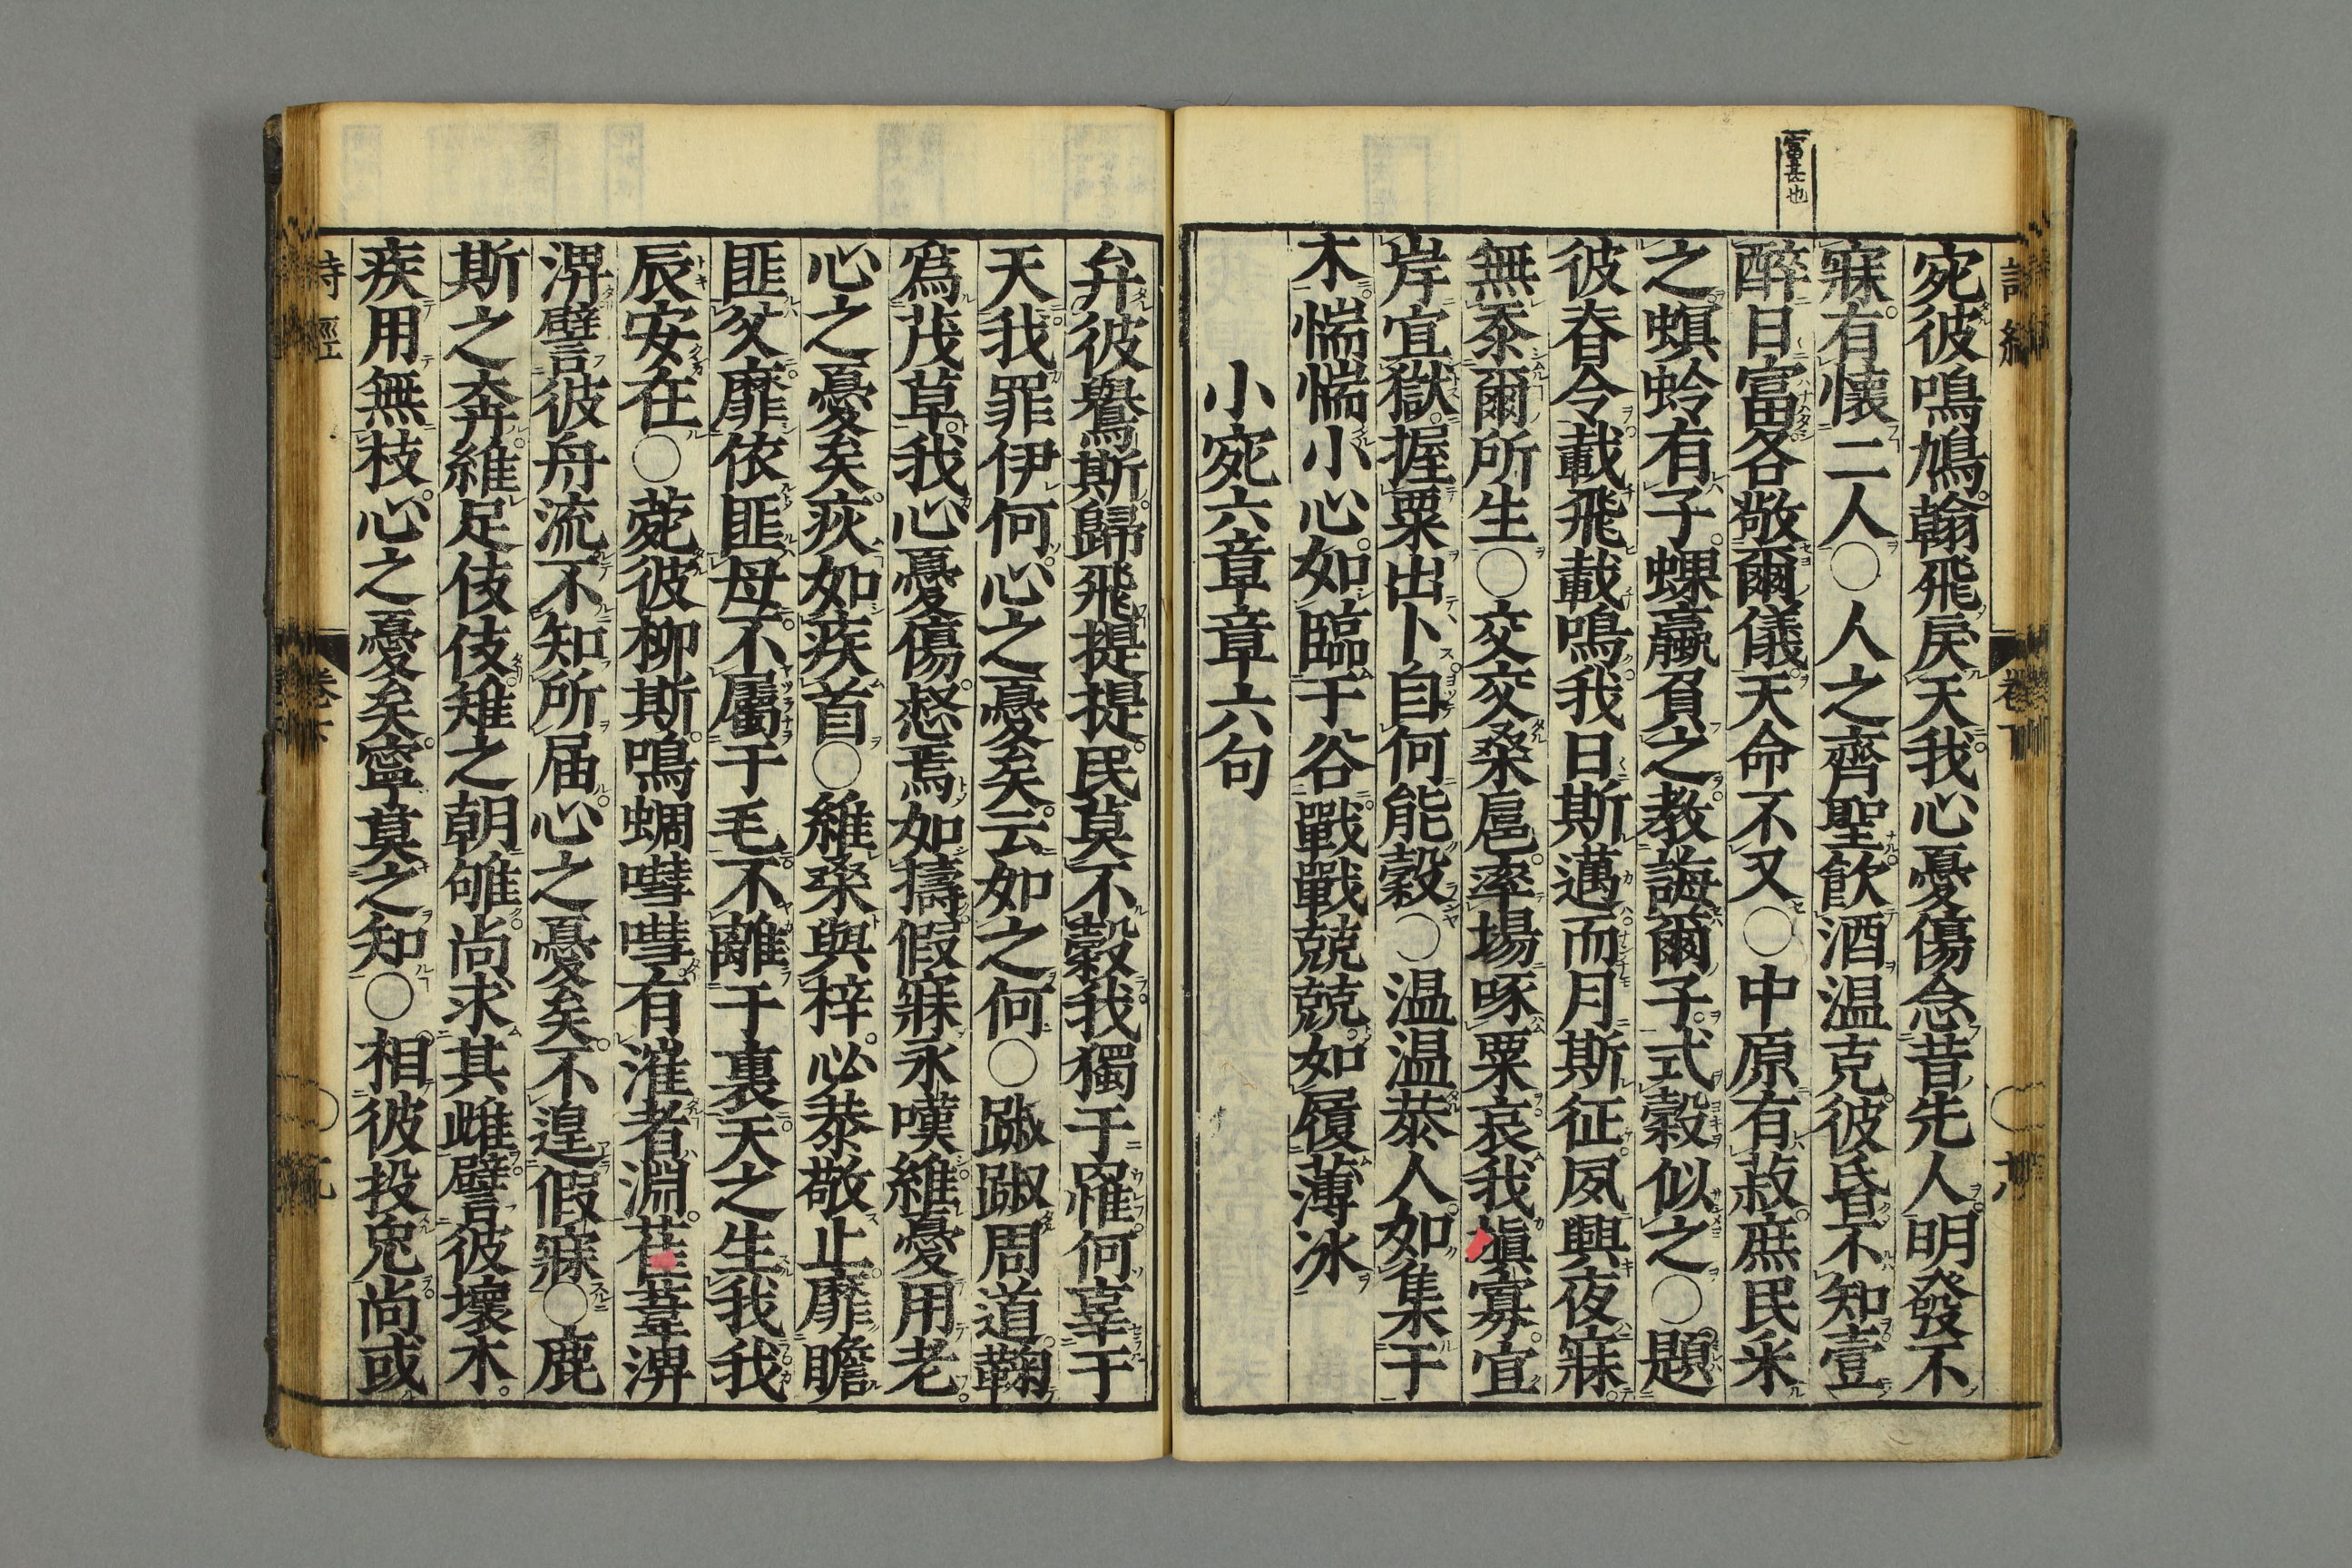 富甚也
宛彼鳴鳩翰飛戾天我心憂傷念昔先人明發不
寐有懷二人○人之齊聖飲酒温克彼昏不知壹
醉日富各敬爾儀天命不又○中原有菽庶民采
之螟蛉有子蜾蠃負之教誨爾子式穀似之○題
彼脊令載飛載鳴我日斯邁而月斯征夙興夜寐
無忝爾所生○交交桑扈率場啄粟哀我塡寡宜
岸宜獄握粟出卜自何能穀○温温恭人如集于
木惴惴小心如臨于谷戰戰兢兢如履薄冰
小宛六章章六句
弁彼鸒斯歸飛提提民莫不穀我獨于罹何辜于
天我罪伊何心之憂矣云如之何○踧踧周道鞫
爲茂草我心憂傷惄焉如擣假寐永嘆維憂用老
心之憂矣疢如疾首○維桑與梓必恭敬止靡瞻
匪父靡依匪母不屬于毛不離于裏天之生我我
辰安在○菀彼柳斯鳴蜩嘒嘒有漼者淵萑葦淠
淠譬彼舟流不知所届心之憂矣不遑假寐○鹿
斯之奔維足伎伎雉之朝雊尚求其雌譬彼壞木
疾用無枝心之憂矣寧莫之知○相彼投兔尚或
詩經
卷下